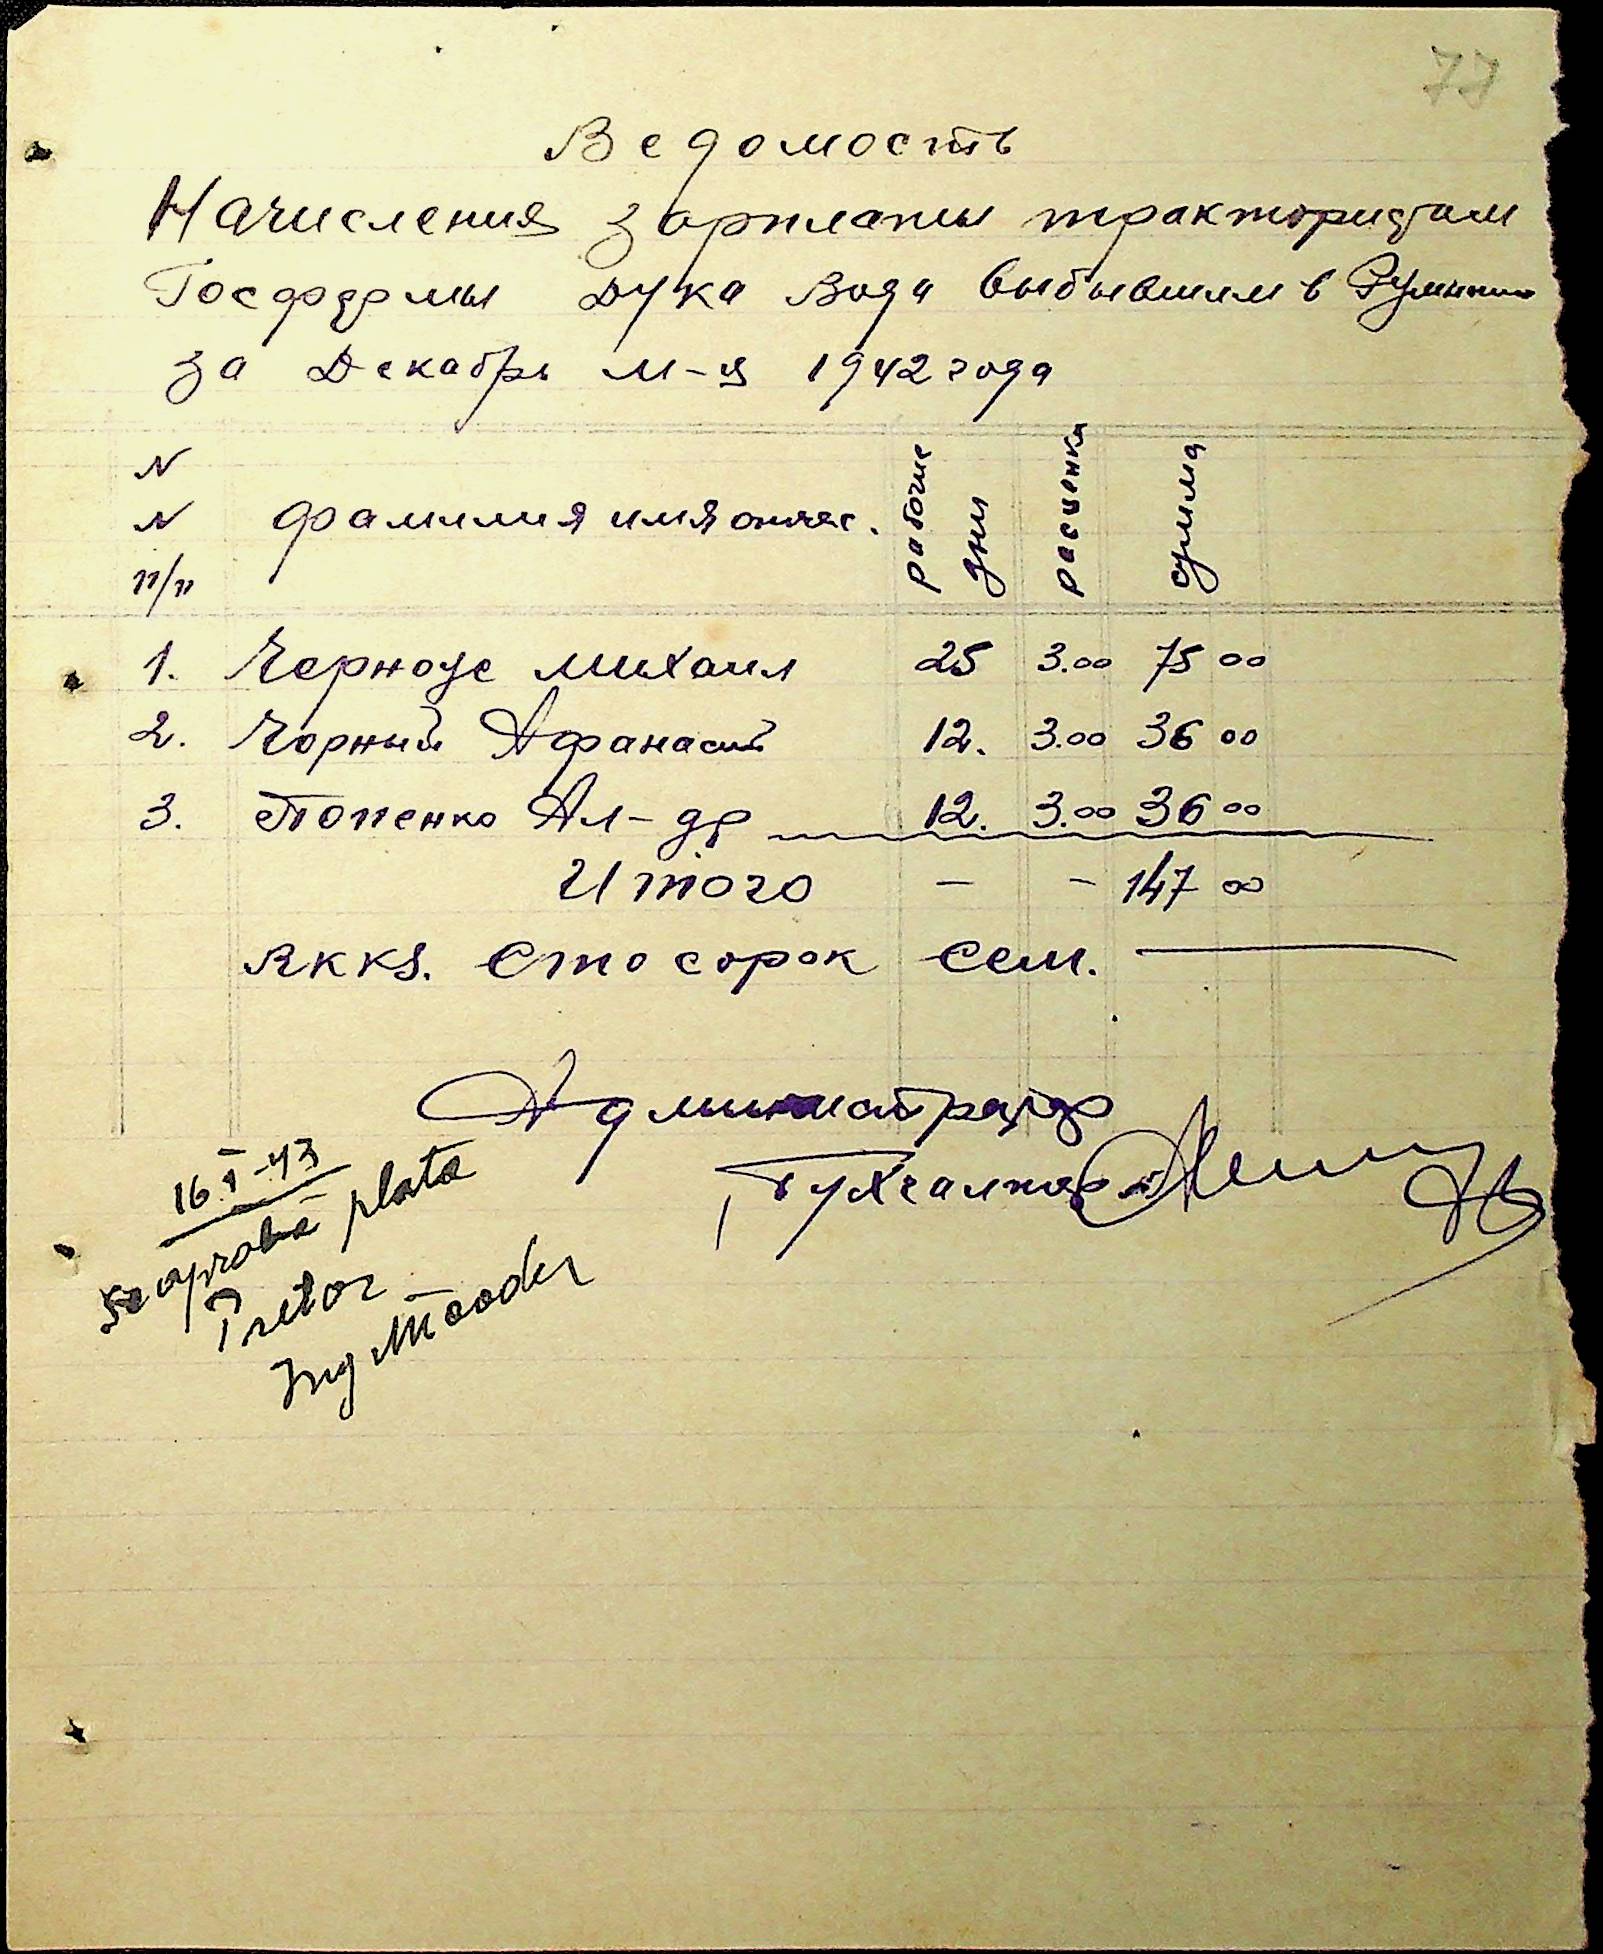 77
Ведомость
Начисления зарплаты трактористам
Госфермы Дука Вода выбывшим в Румынию
за Декабрь м-ц 1942 года
N N п/п фамилия имя отчес. рабочие дни расценка сумма
1. Черноус Михаил 25 3.00 75 00
2. Чорный Афанасий 12. 3.00 36 00
3. Попенко Ал-др 12. 3.00 36 00
Итого — - 147 00
RKKS. Сто сорок сем.
Администратор
Бухгалтер
16.I-43
Se aprobă plata
Pretor
Ing